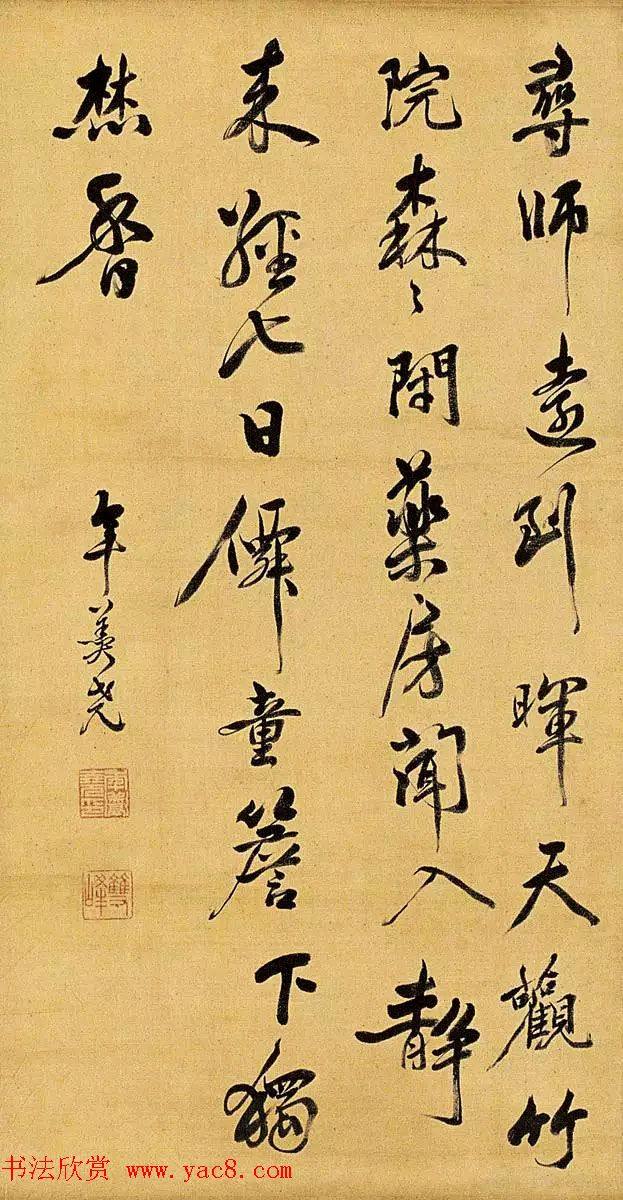 尋師遠到暉天觀竹
院森々閑藥房聞入靜
来經七日僊童簷下獨
焚香
年羹尧
年羹堯印
雙峰
书法欣赏 www.yac8.com